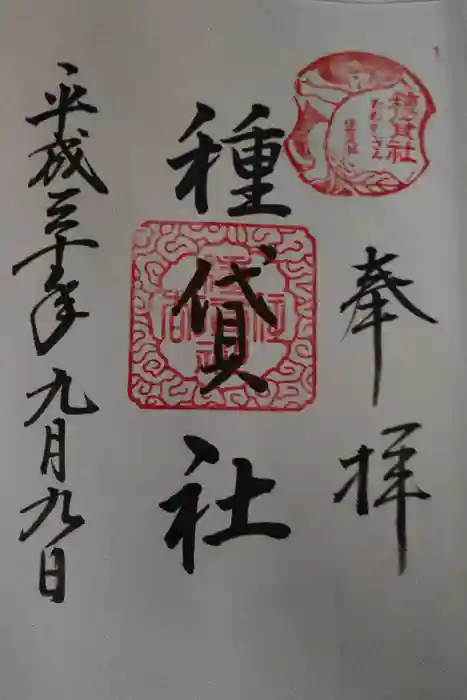 奉拝
種貸社
種貸社
平成三十年九月九日